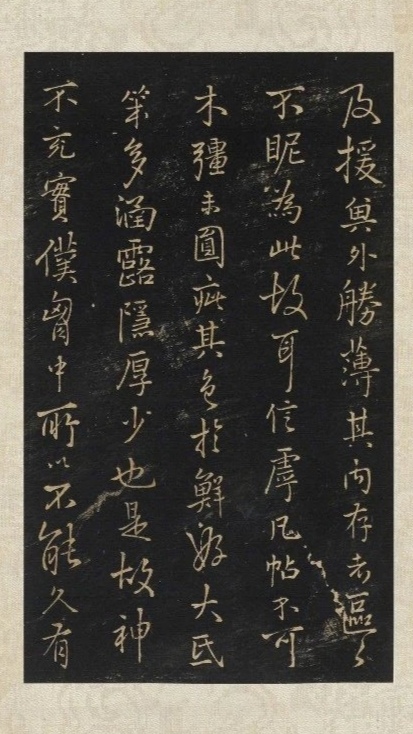 及援與外勝薄其內存者區
不昵為此故耳信虖凡帖不可
木彊未圓疵其色於鮮大氐
筆多涵露隱厚少也是故神
不充實僕胷中所以不能久有